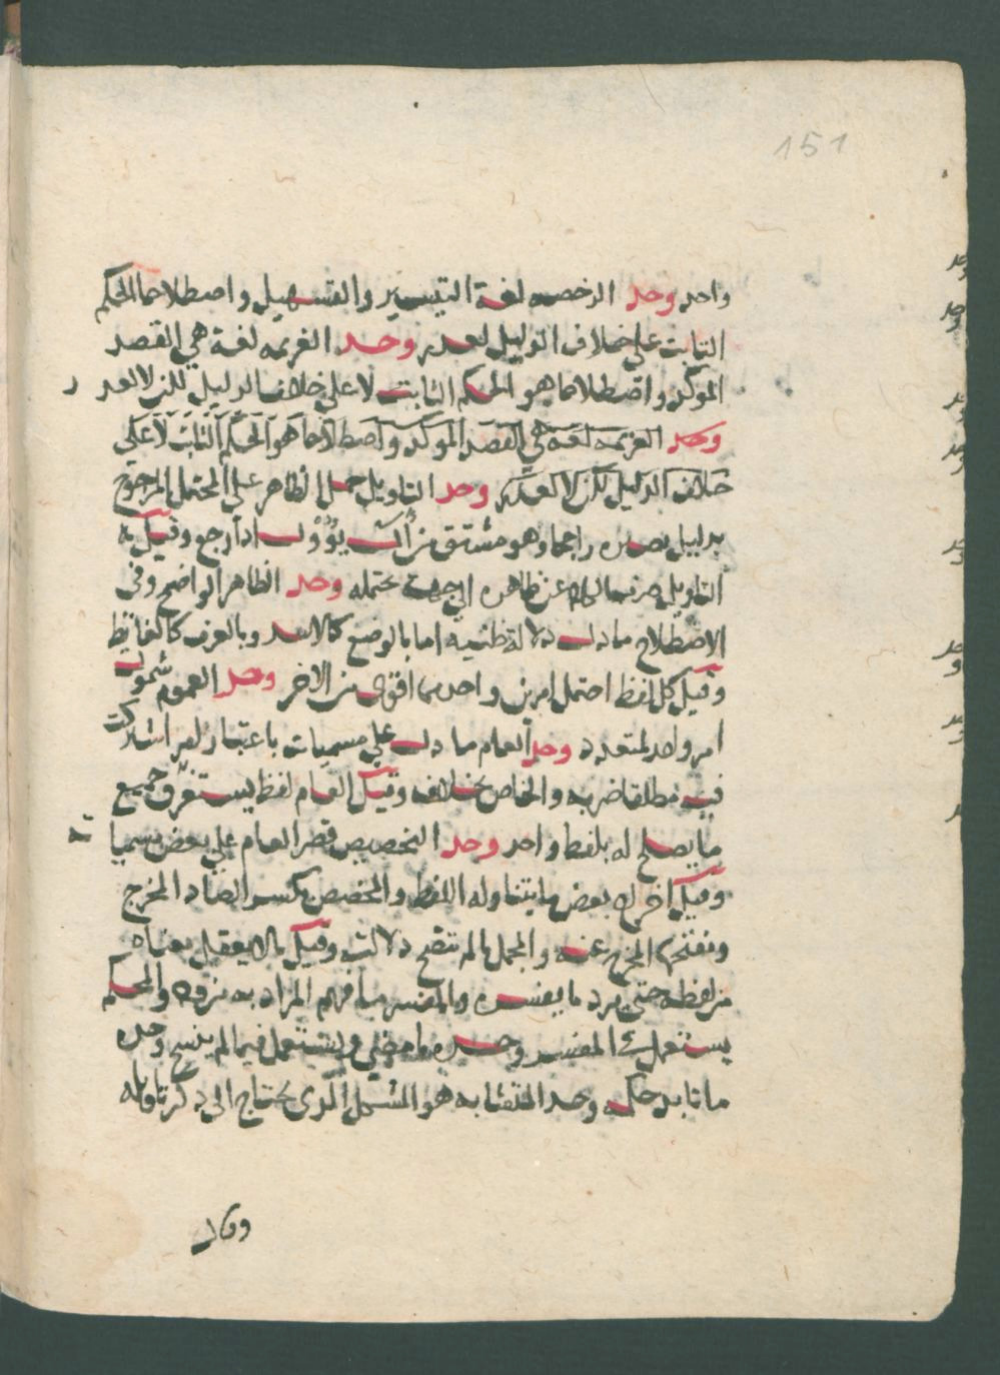 151
واحد وحد الرخصه لغة التيسير والتسهيل واصطلاحا الحكم
الثابت على خلاف الدليل لعذر وحد العزيمه لغة هي القصد
الموكد واصطلاحا هو الحكم الثابت لا على خلاف الدليل لكن لا لعذر
وحد العزيمه لغة هي القصد الموكد واصطلاحا هو الحكم الثابت لا على
خلاف الدليل لكن لا لعذر وحد التاويل حمل الظاهر على المحتمل المرجوح
بدليل يصيره راجحا وهو مشتق من آل يؤول اذا رجع وقيل
التاويل صرف الكلام عن ظاهره الى جهة محتمله وحد الظاهر الواضح وفي
الاصطلاح ما دل دلالة ظنيه اما بالوضع كالاسد وبالعرف كالغائط
وقيل كل لفظ احتمل امرين واحدهما اقوى من الاخر وحد العموم شمول
امر واحد لمتعدد وحد العام ما دل على مسميات باعتبار امر اشتركت
فيه مطلقا ضربه والخاص بخلافه وقيل العام لفظ يستغرق جميع
ما يصلح له بلفظ واحد وحد التخصيص قصر العام على بعض مسميا
وقيل اخراج بعض ما يتناوله اللفظ والمخصص بكسر الصاد المخرج
وبفتحها المخرج عنه والمجمل ما لم تتضح دلالته وقيل ما لا يعقل معناه
من لفظه حتى يرد ما يفسره والمفسر ما فهم المراد به من والمحكم
يستعمل في المفسر وحده ما مضى ويستعمل فيما لم ينسخ وحده
ما تابد حكمه وحد المتشابه هو المشكل الذي يحتاج الى ذكر تاويله
وقال